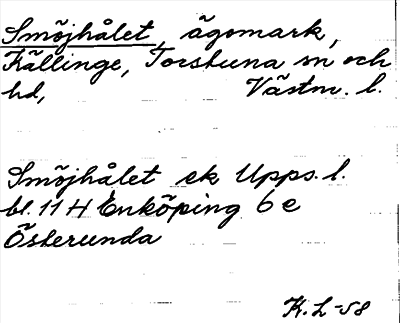 Smöjhålet, ägomark,
Källinge, Torstuna sn och
hd, Västm. l.
Smöjhålet ek Upps. l.
bl. 11 H Enköping 6 e
Österunda
K. L -58